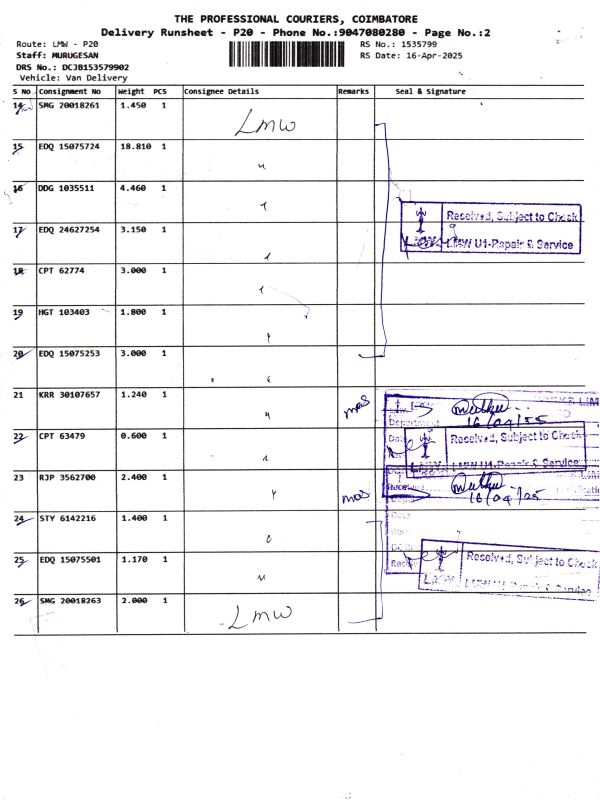 THE PROFESSIONAL COURIERS, COIMBATORE
Delivery Runsheet - P20 - Phone No.:9047080280 - Page No.:2
Route: LMW - P20
RS No.: 1535799
Staff: MURUGESAN
RS Date: 16-Apr-2025
DRS No.: DCJB153579902
Vehicle: Van Delivery
S No Consignment No Weight PCS Consignee Details Remarks Seal & Signature
14 SMG 20018261 1.450 1 LMW
15 EDQ 15075724 18.810 1 "
16 DDG 1035511 4.460 1
Received, Subject to Check
17 EDQ 24627254 3.150 1
LMW U1-Repair & Service
18 CPT 62774 3.000 1
19 HGT 103403 1.800 1
20 EDQ 15075253 3.000 1
21 KRR 30107657 1.240 1 " mas
16/04/25
22 CPT 63479 0.600 1
Received, Subject to Check
LMW U1-Repair & Service
23 RJP 3562700 2.400 1 mas
16/04/25
24 STY 6142216 1.400 1
25 EDQ 15075501 1.170 1 "
Received, Subject to Check
26 SMG 20018263 2.000 1 - LMW